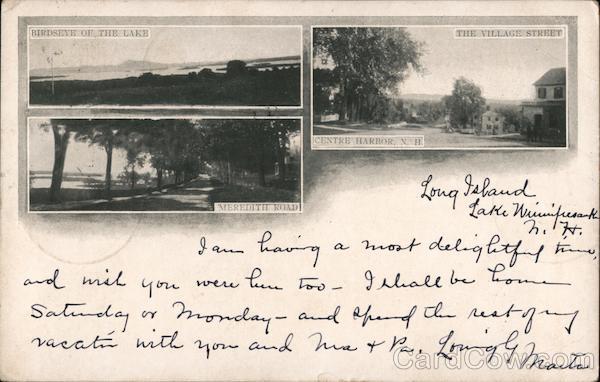 BIRDSEYE OF THE LAKE
THE VILLAGE STREET
CENTRE HARBOR, N. H.
MEREDITH ROAD
Long Island
Lake Winnipesauk
N. H.
I am having a most delightful time,
and wish you were here too - I shall be home
Saturday or Monday - and spend the rest of my
vacat'n with you and Ma & Pa. Lovingly
CardCow.com